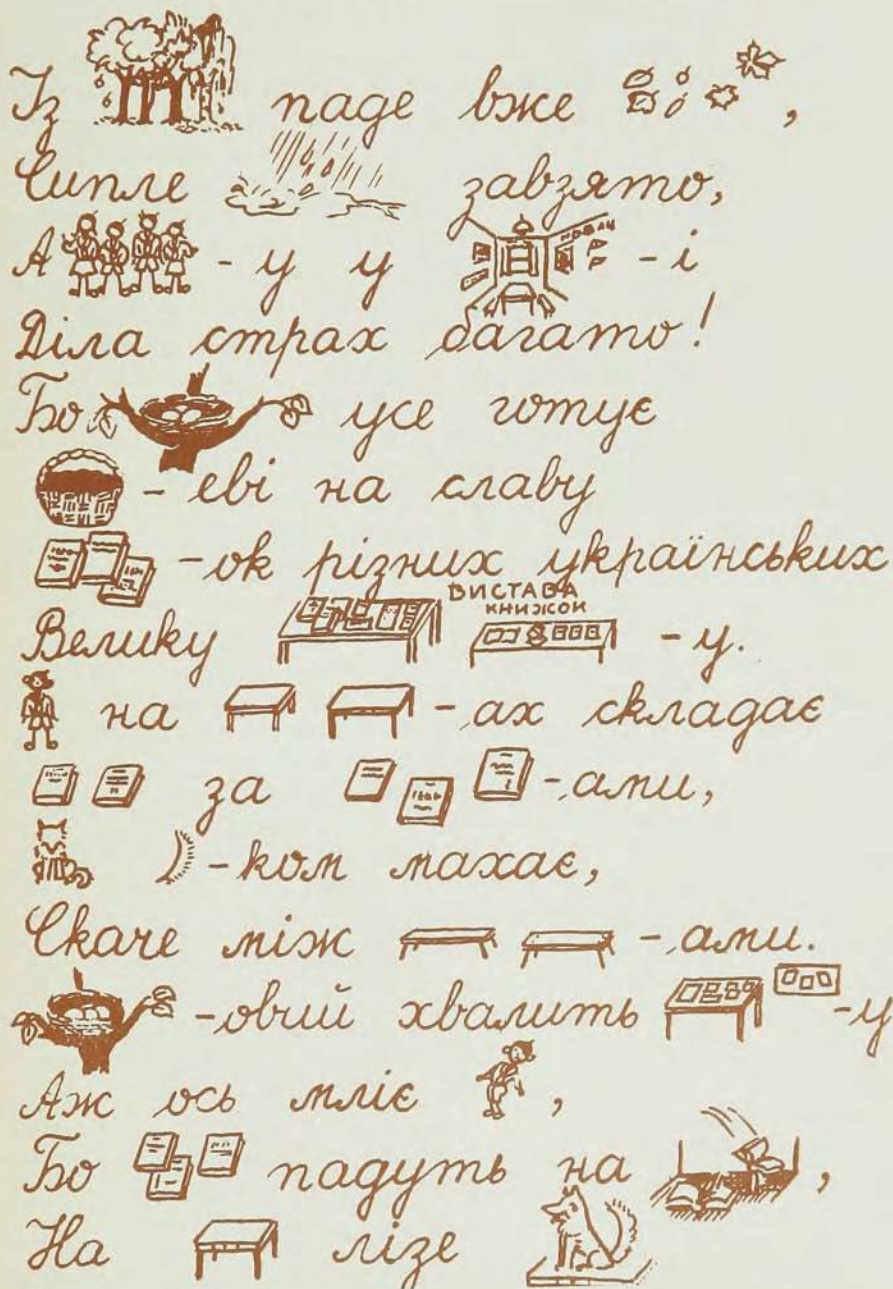 Із падe вже ,
Сипле завзято,
А -у у -і
Діла страх багато!
Бо усе готує
-еві на славу
-ок різних українських
ВИСТАВА
КНИЖОК
Велику -у.
на -ах складає
за -ами,
-ком махає,
Скаче між -ами.
-овий хвалить -у
Аж ось мліє ,
Бо падуть на ,
На лізе